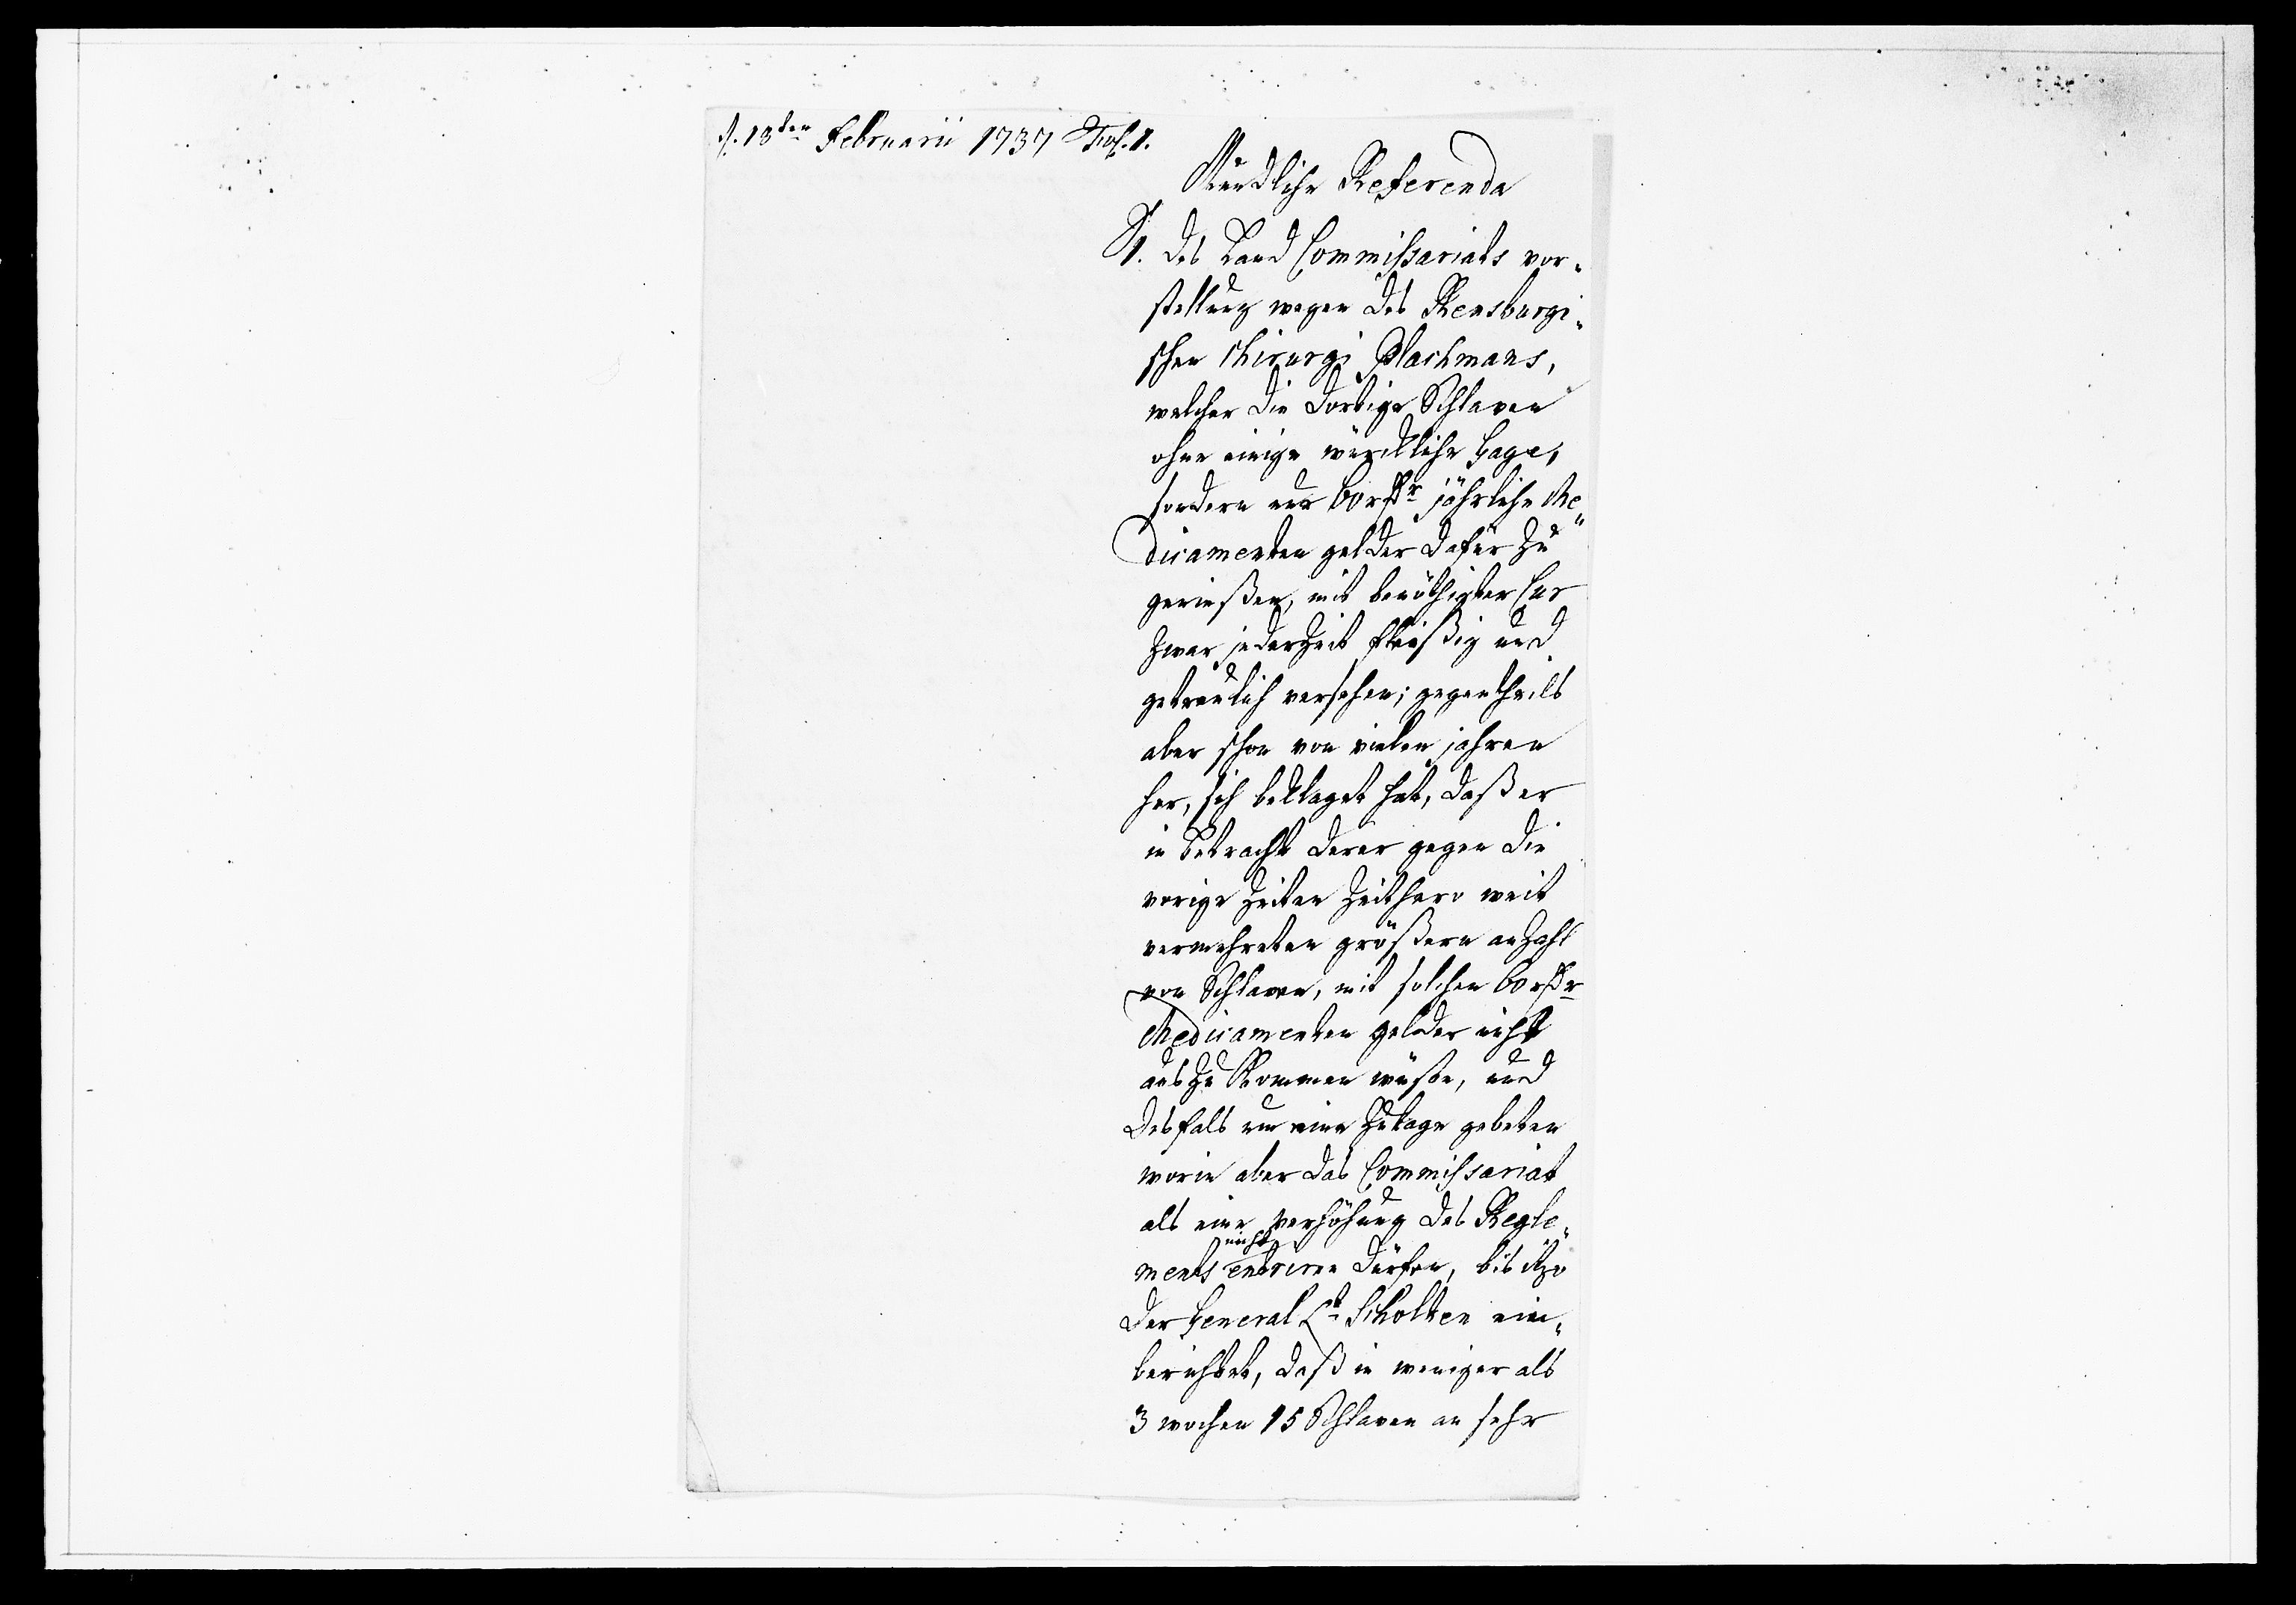 d. 13ten Februarii 1737 Fol. 1.
Mündliche Referenda
1. des Land Commissariats vor„
stellung wegen des Rensburgi„
schen Chirurgi Plachmans,
welcher die dortige Schlaven
ohne einige würckliche Gage,
sondern nur 60 rdr jährliche Me„
dicamenten gelder dafür zu
genießen, mit benöthigter Cur
zwar jederzeit fleißig und
getreulich versehen; gegentheils
aber schon von vielen jahren
her, sich beklaget hat, daß er
in betracht derer gegen die
vorige Zeiten zeithero weit
vermehreten größern anzahl
von Schlaven, mit solchen 60 rdr
Medicamenten gelder nicht
aus zu kommen wüste, und
desfals um eine Zulage gebeten
worin aber das Commissariat
als eine verhöhung des Regle„
ments nicht entriren dürfen, bis itzo
der General Lt Scholten ein„
berichtet, daß in weniger als
3 wochen 15 Schlaven an sehr